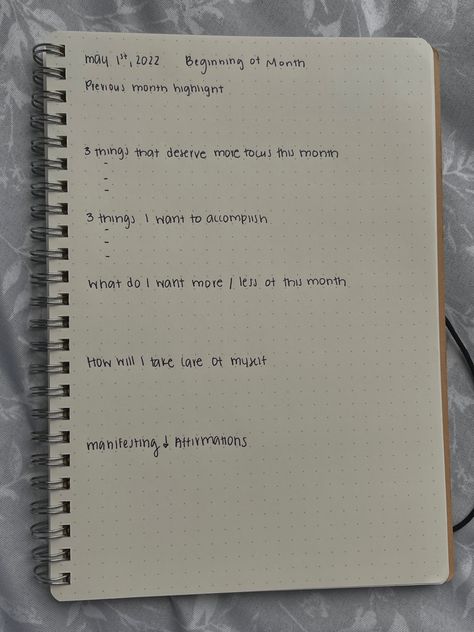 may 1st, 2022 Beginning of Month
Previous month highlight
3 things that deserve more focus this month
-
-
-
3 things I want to accomplish
-
-
-
What do I want more / less of this month
How will I take care of myself
manifesting & Affirmations